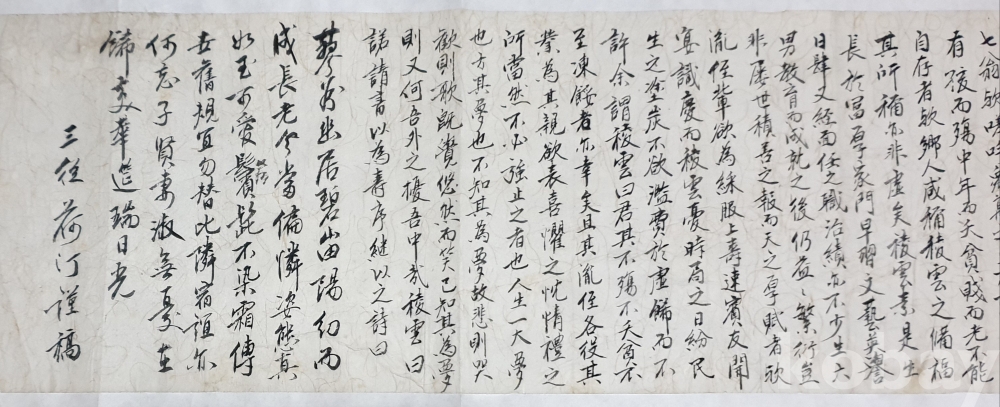 七翁歟
有孩而殤中年而夭貧賤而老不能
自存者歟鄉人咸稱稜雲之備福
其所稱亦非虛矣稜雲素是生
長於富厚家門早習文藝華譽
日肆又經面任之職治績亦不少生六
男教育而成就之後仍益〻繁衍豈
非屢世積善之報而天之厚賦者歟
胤侄輩欲為綵服上壽速賓友開
宴識慶而稜雲憂時局之日紛民
生之塗炭不欲濫費於虛歸而不
許余謂稜雲曰君其不殤不夭貧不
至凍餒者亦幸矣且其胤侄各役其
業為其親欲表喜懼之忱情禮之
所當然不必強止之者也人生一大夢
也方其夢也不知其為夢故悲則哭
歡則歌既覺悠然而笑已知其為夢
則又何吾外之擾吾中哉稜雲曰
諾請書以為壽序繼以之詩曰
為幽居碧山陽幻而
成長老今當偏憐姿態真
如玉可愛鬢髮不染霜傳
世舊規宜勿替比隣宿誼亦
何忘子賢妻淑無憂在
歸來華筵瑞日光
三従荷汀謹稿